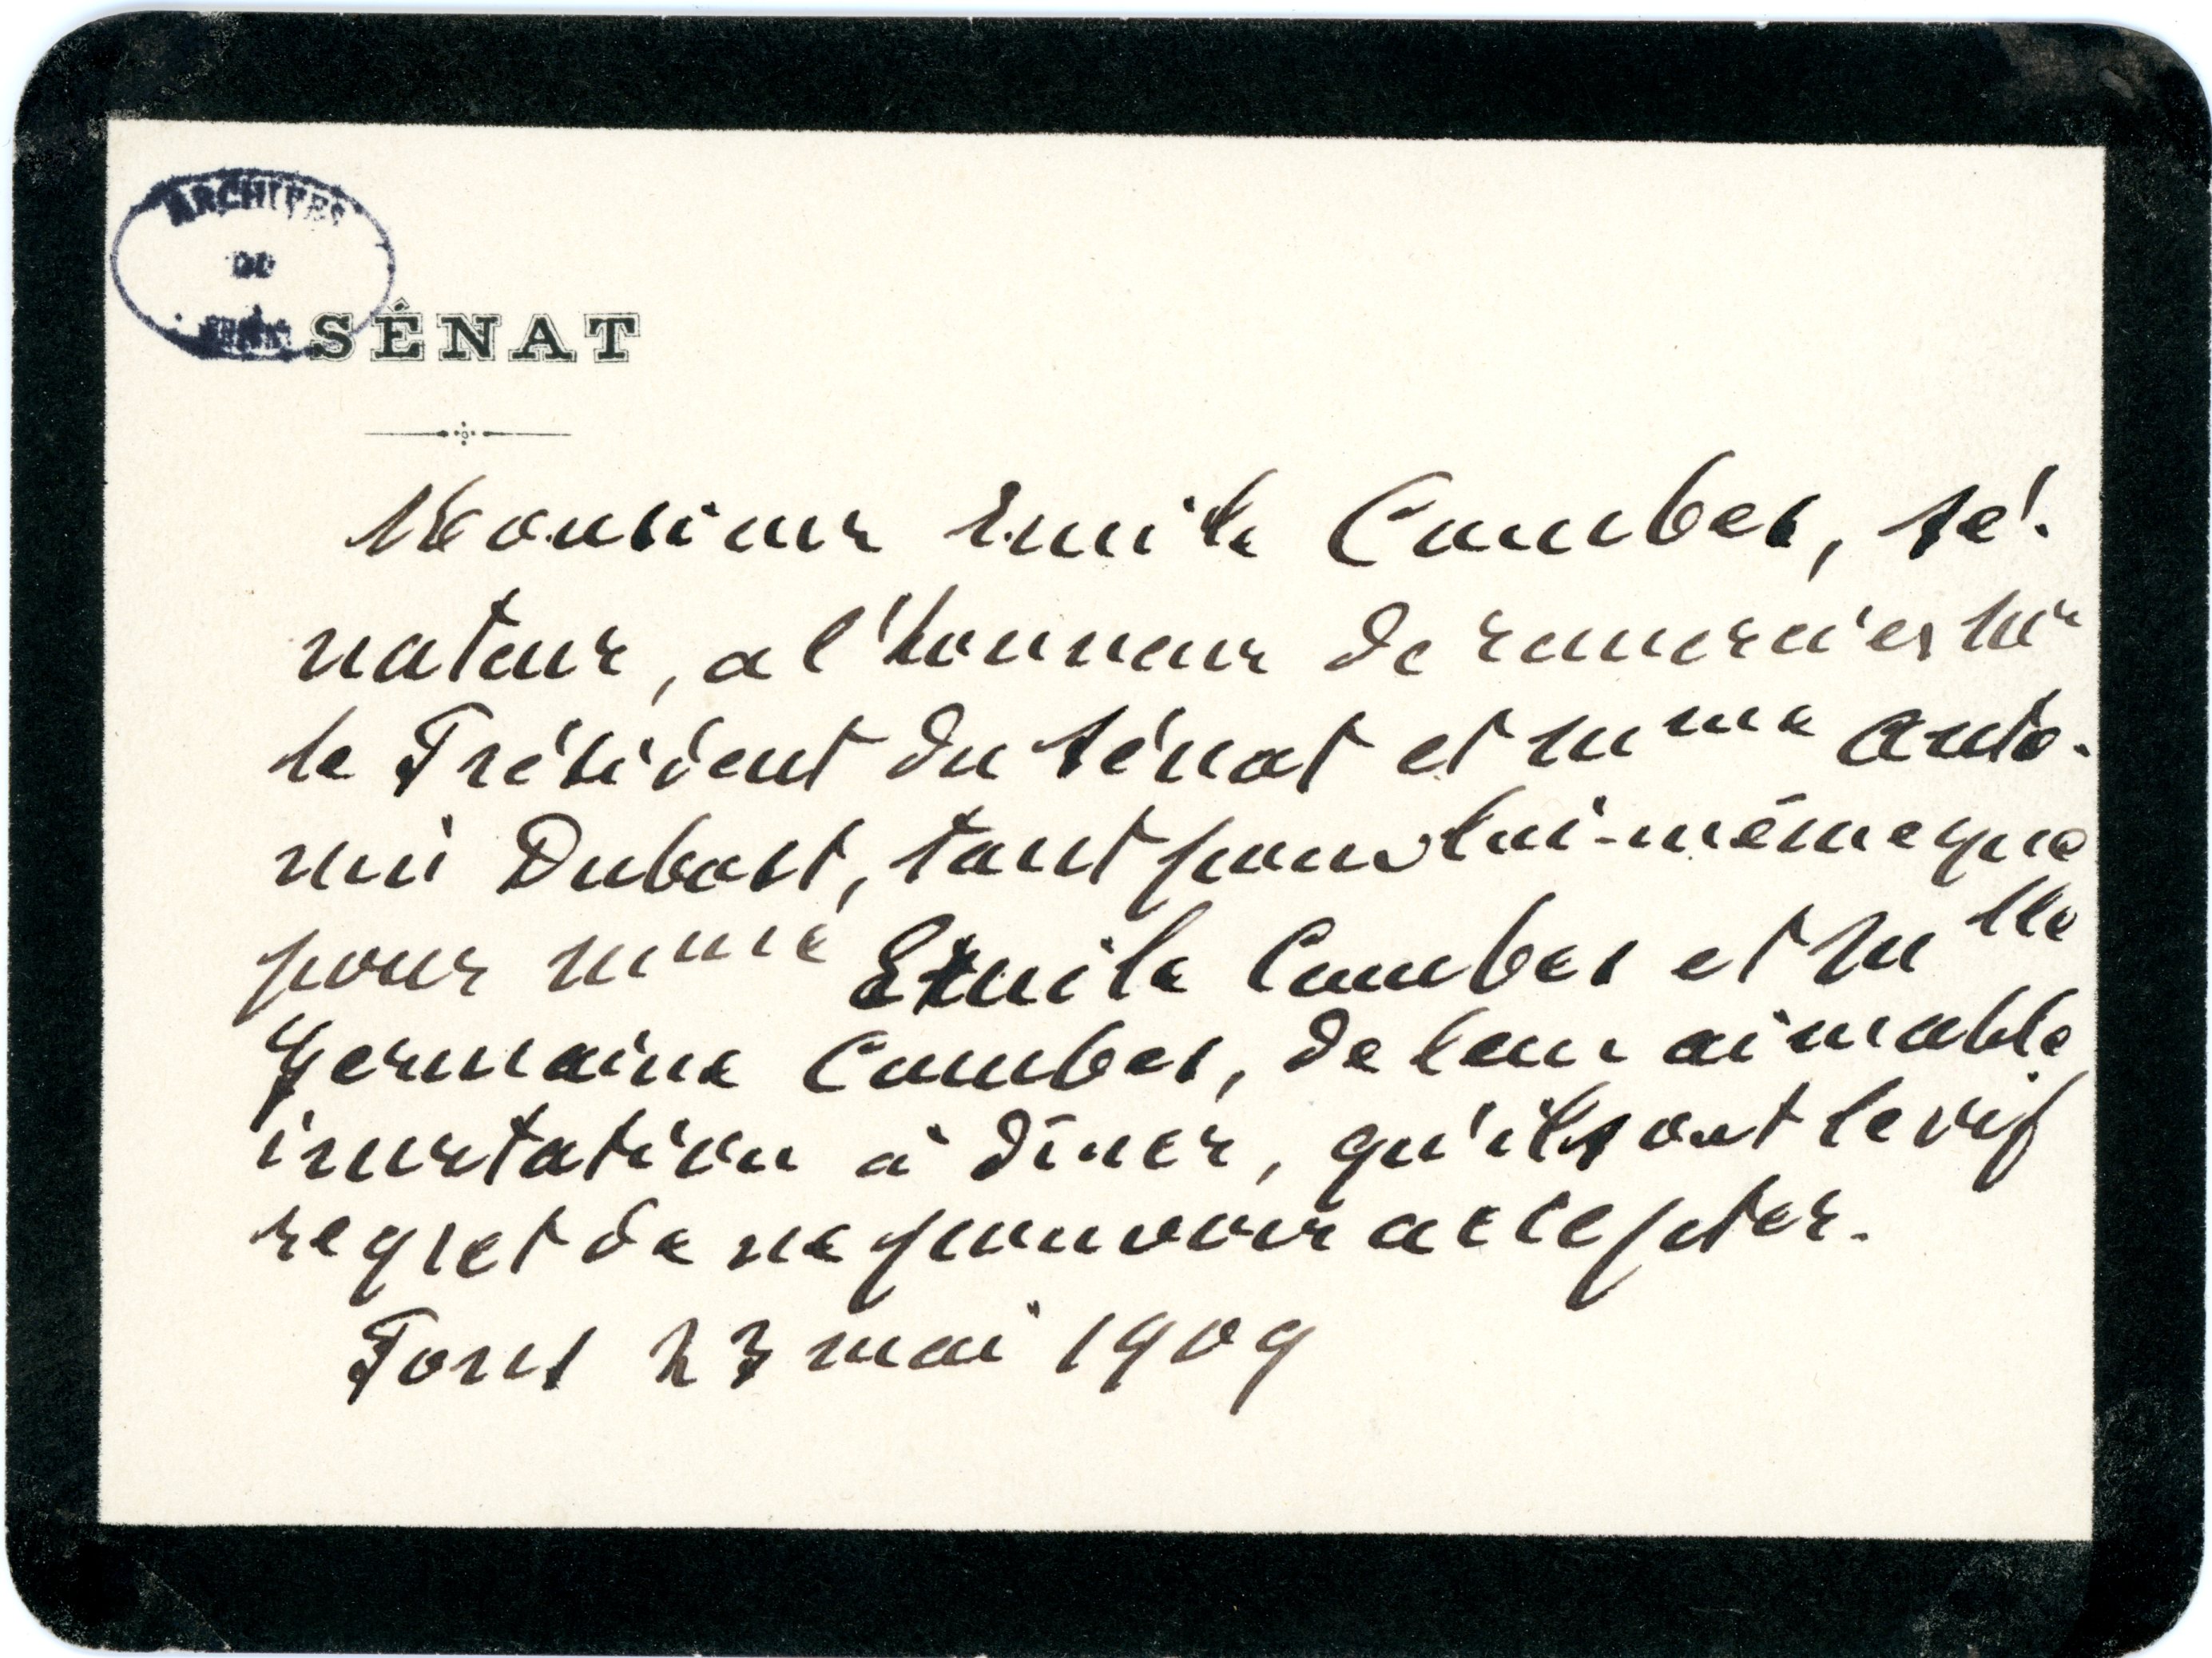 ARCHIVES
DU
SÉNAT
SÉNAT
Monsieur Emile Combes, sé-
nateur, a l'honneur de remercier Mr
le Président du Sénat et Mme Anto-
nin Dubost, tant pour lui-même que
pour Mme Emile Combes et Mlle
Germaine Combes, de leur aimable
invitation à dîner, qu'ils ont le vif
regret de ne pouvoir accepter.
Pons 23 mai 1909